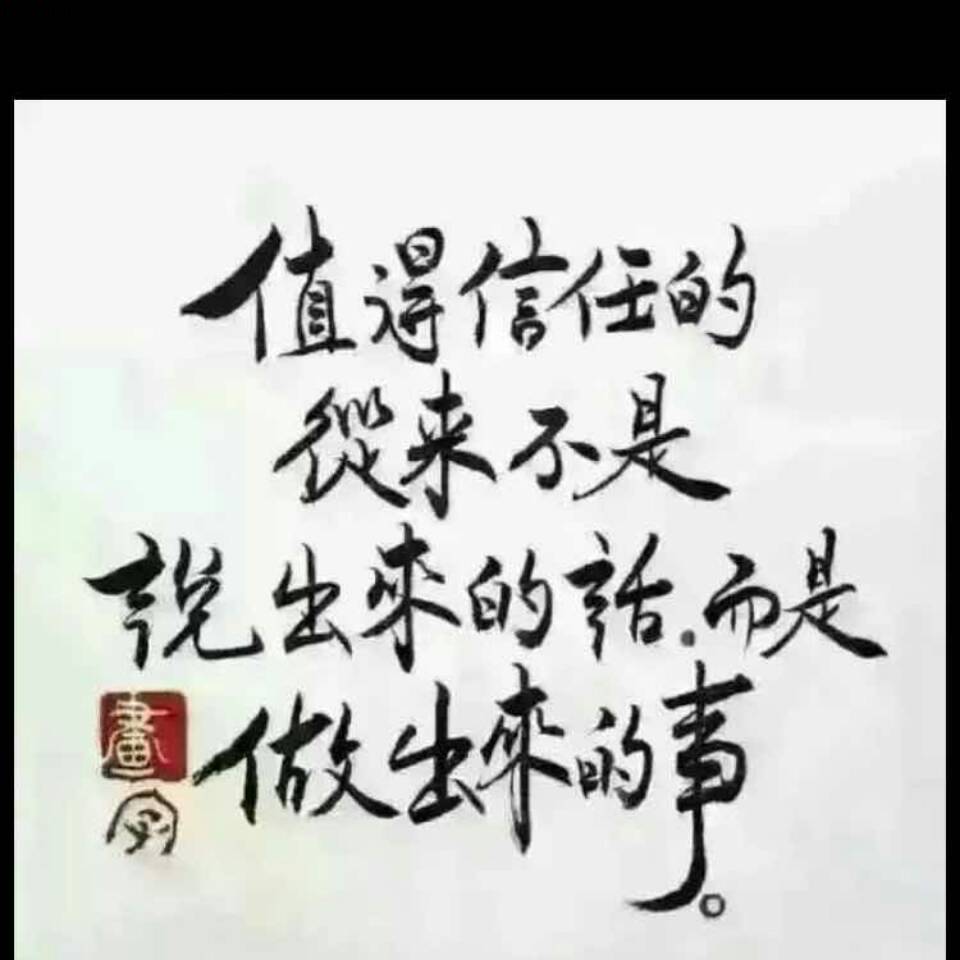 值得信任的
從来不是
説出來的話.而是
做出來的事。
畫
字